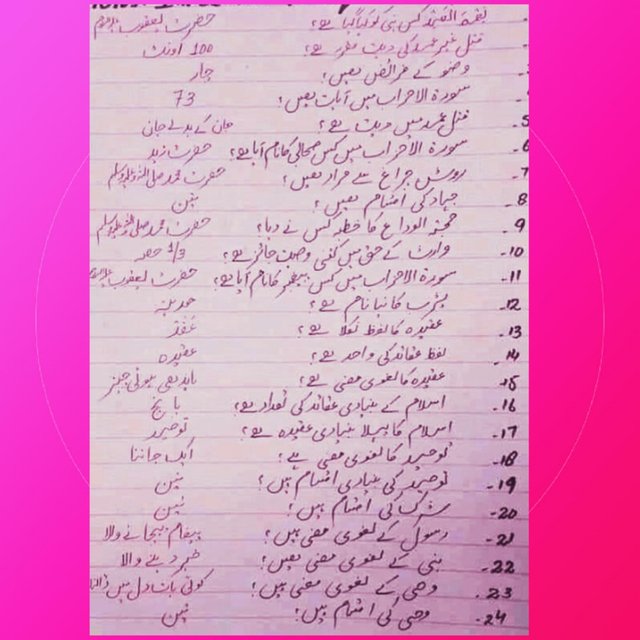 لقمۃ الصبر کس نبی کو کہا گیا ہے؟ حضرت یعقوب علیہ السلام
قتل غیر عمد کی دیت مقرر ہے؟ 100 اونٹ
وضو کے فرائض ہیں؟ چار
سورۃ الاحزاب میں آیات ہیں؟ 73
5- قتل عمد میں دیت ہے؟ جان کے بدلے جان
6- سورۃ الاحزاب میں کس صحابی کا نام آیا ہے؟ حضرت زید
7- روشن چراغ سے مراد ہیں؟ حضرت محمد صلی اللہ علیہ وسلم
8- جہاد کی اقسام ہیں؟ تین
9- حجۃ الوداع کا خطبہ کس نے دیا؟ حضرت محمد صلی اللہ علیہ وسلم
10- وارث کے حق میں کتنی وصیت جائز ہے؟ 1/3 حصہ
11- سورۃ الاحزاب میں کس پیغمبر کا نام آیا ہے؟ حضرت یعقوب علیہ السلام
12- یثرب کا نیا نام ہے؟ مدینہ
13- عقیدہ کا لفظ نکلا ہے؟ عقد
14- لفظ عقائد کی واحد ہے؟ عقیدہ
15- عقیدہ کا لغوی معنی ہے؟ باندھی ہوئی چیز
16- اسلام کے بنیادی عقائد کی تعداد ہے؟ پانچ
17- اسلام کا پہلا بنیادی عقیدہ ہے؟ توحید
18- توحید کا لغوی معنی ہے؟ ایک جاننا
19- توحید کی بنیادی اقسام ہیں؟ تین
20- شرک کی اقسام ہیں؟ تین
21- رسول کے لغوی معنی ہیں؟ پیغام پہچانے والا
22- نبی کے لغوی معنی ہیں؟ خبر دینے والا
23- وحی کے لغوی معنی ہیں؟ کوئی بات دل میں
24- وحی کی اقسام ہیں؟ تین